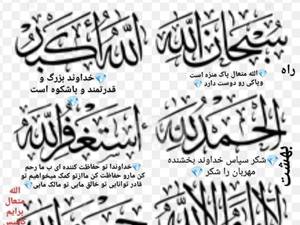 سبحان الله
الله أكبر
💎الله متعال پاک منزه است
وپاکی رو دوست دارد💎
💎خداوند بزرگ و
قدرتمند و باشکوه است
💎
راه
الحمد لله
أستغفر الله
💎شکر سپاس خداوند بخشنده
مهربان را شکر💎
💎خداوندا تو حفاظت کننده ای ب ما رحم
کن مارو حفاظت کن مااز‌تو کمک میخواهیم تو
قادر توانایی تو خالق مایی تو مالک مایی💎
بهشت
الله
متعال
برایم
لا إله إلا الله